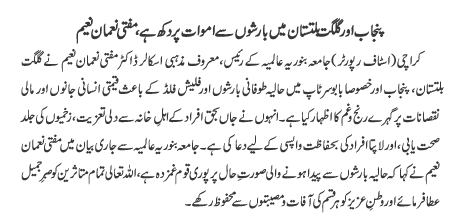 پنجاب اور گلگت بلتستان میں بارشوں سے اموات پر دکھ ہے، مفتی نعمان نعیم
کراچی (اسٹاف رپورٹر) جامعہ بنوریہ عالمیہ کے رئیس، معروف مذہبی اسکالر ڈاکٹر مفتی نعمان نعیم نے گلگت
بلتستان، پنجاب اور خصوصا بابوسر ٹاپ میں حالیہ طوفانی بارشوں اور فلیش فلڈ کے باعث قیمتی انسانی جانوں اور مالی
نقصانات پر گہرے رنج و غم کا اظہار کیا ہے۔ انہوں نے جاں بحق افراد کے اہل خانہ سے دلی تعزیت، زخمیوں کی جلد
صحت یابی، اور لاپتا افراد کی بحفاظت واپسی کے لیے دعا کی ہے۔ جامعہ بنوریہ عالمیہ سے جاری بیان میں مفتی نعمان
نعیم نے کہا کہ حالیہ بارشوں سے پیدا ہونے والی صورت حال پر پوری قوم غمزدہ ہے، اللہ تعالی تمام متاثرین کو صبر جمیل
عطا فرمائے اور وطن عزیز کو ہر قسم کی آفات و مصیبتوں سے محفوظ رکھے۔